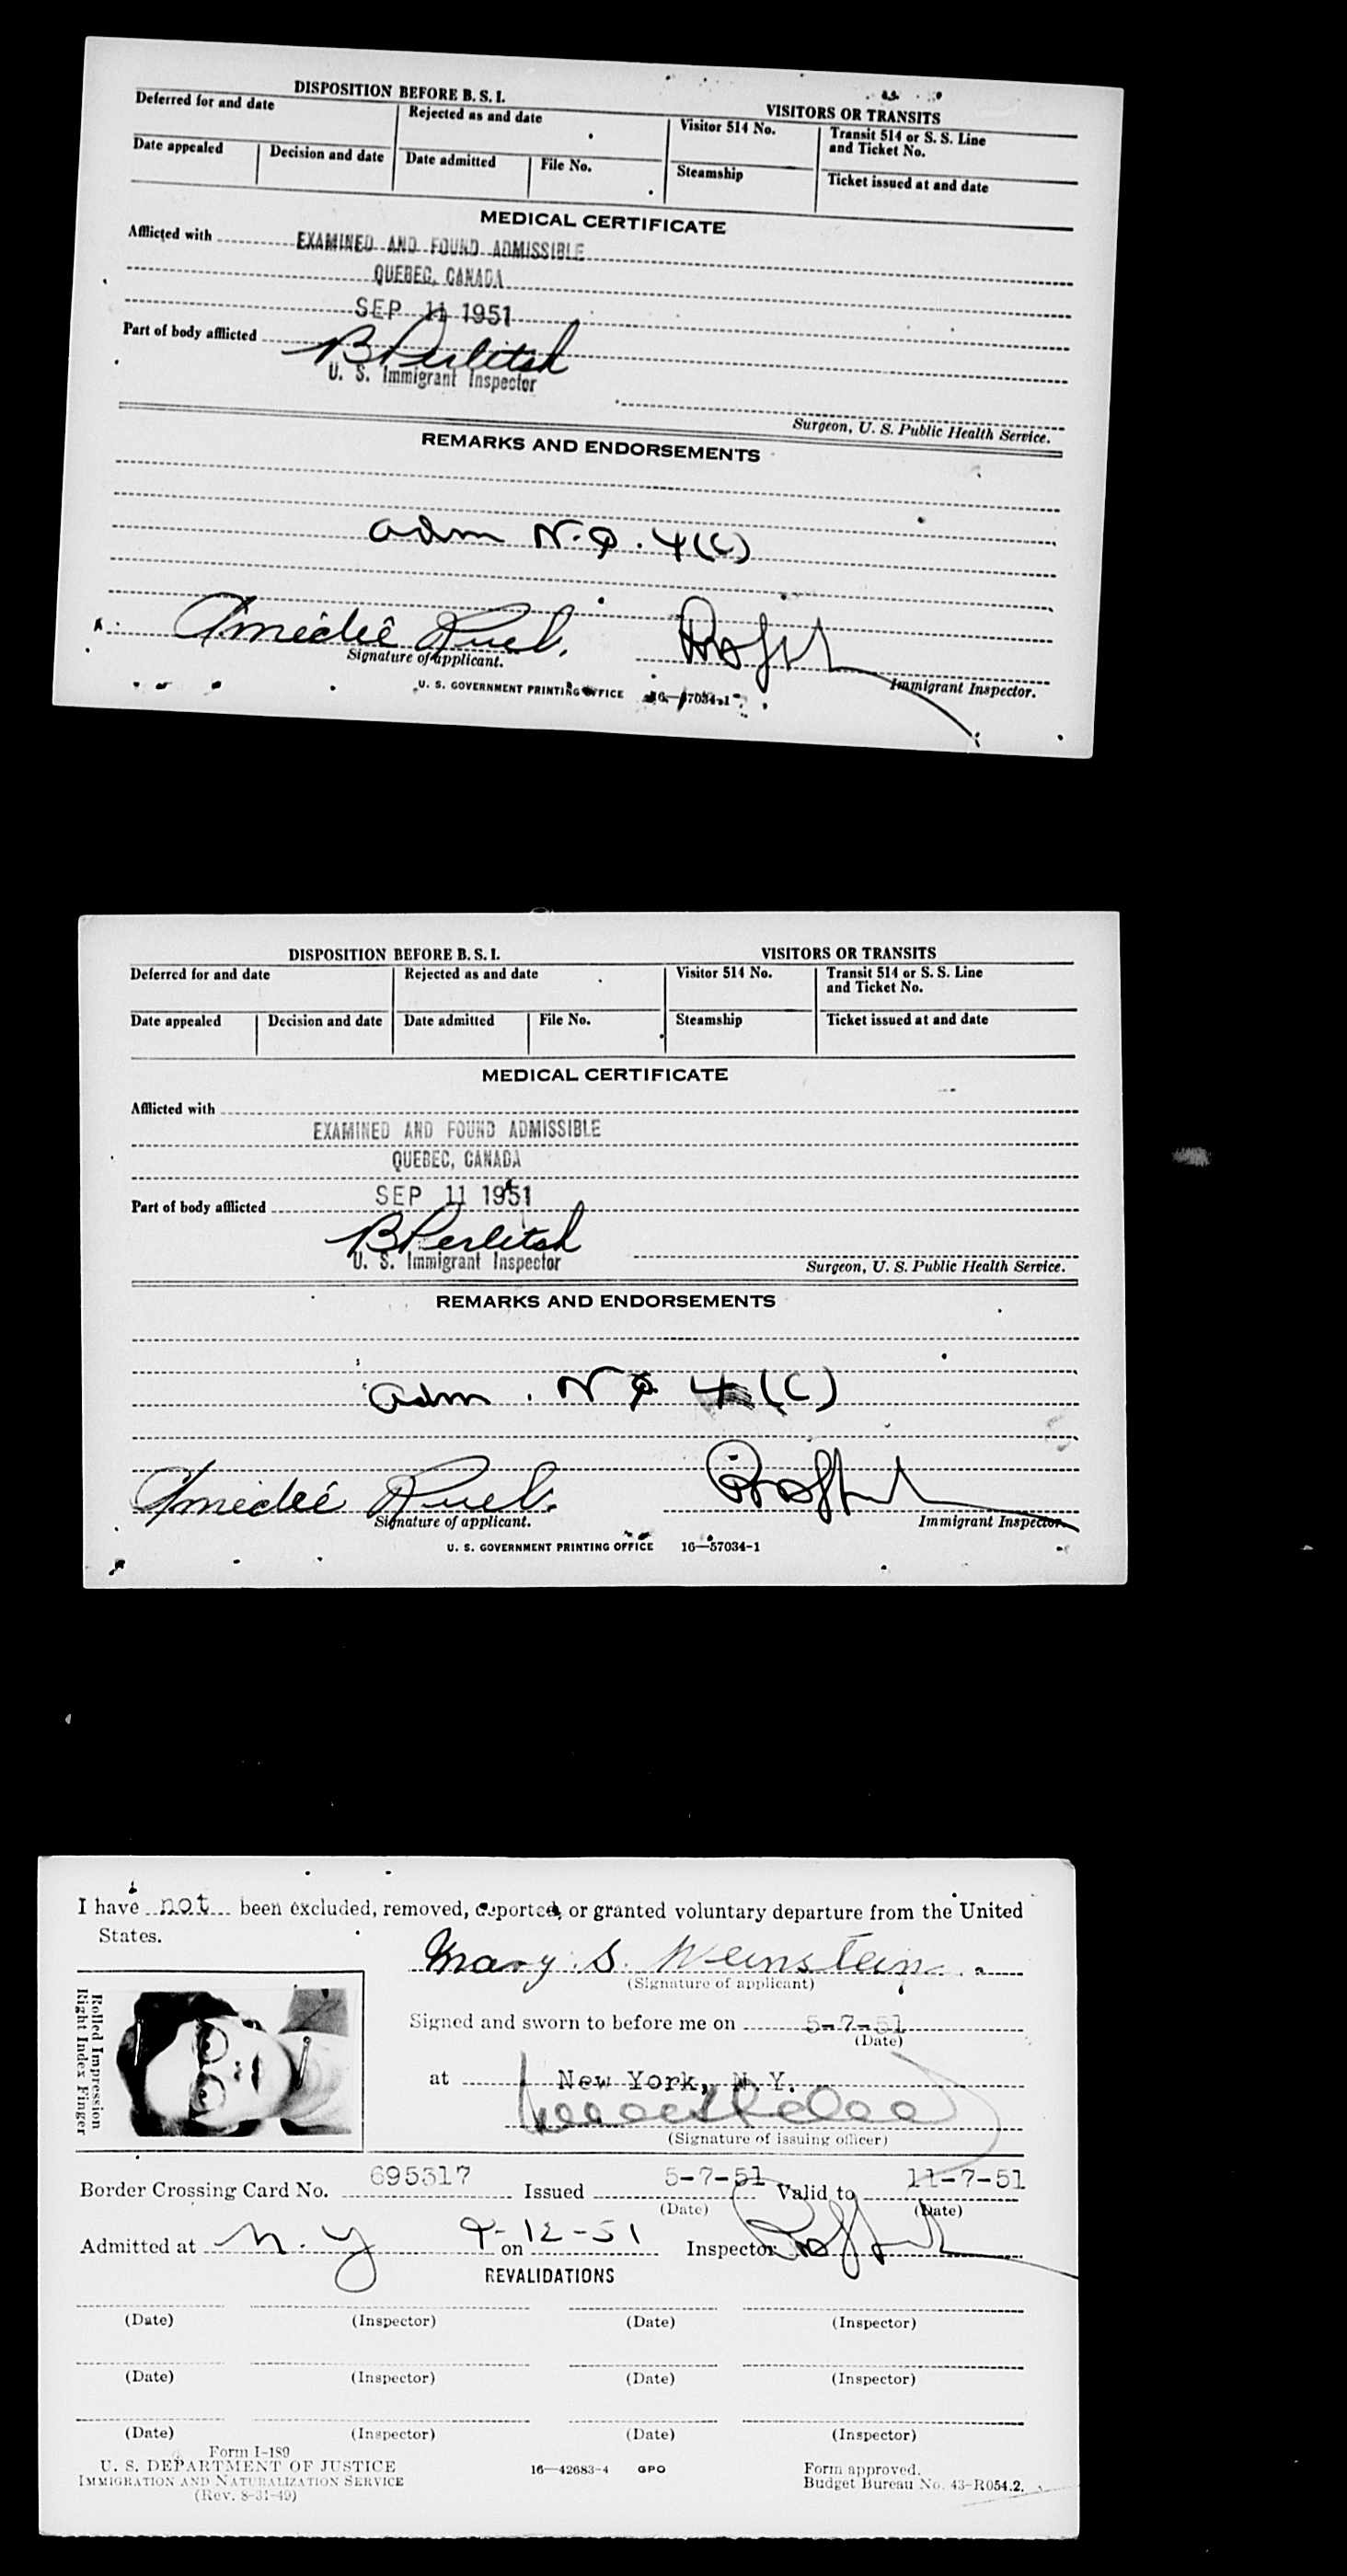 DISPOSITION BEFORE B. S. I.
VISITORS OR TRANSITS
Deferred for and date
Rejected as and date
Visitor 514 No.
Transit 514 or S. S. Line
and Ticket No.
Date appealed
Decision and date
Date admitted
File No.
Steamship
Ticket issued at and date
MEDICAL CERTIFICATE
Afflicted with
EXAMINED AND FOUND ADMISSIBLE
QUEBEC, CANADA
SEP 11 1951
Part of body afflicted
BPerlitsh
U. S. Immigrant Inspector
Surgeon, U. S. Public Health Service.
REMARKS AND ENDORSEMENTS
adm N.Q. 4(C)
Amédée Ruel.
Signature of applicant.
Immigrant Inspector.
U. S. GOVERNMENT PRINTING OFFICE 16—57034-1
DISPOSITION BEFORE B. S. I.
VISITORS OR TRANSITS
Deferred for and date
Rejected as and date
Visitor 514 No.
Transit 514 or S. S. Line
and Ticket No.
Date appealed
Decision and date
Date admitted
File No.
Steamship
Ticket issued at and date
MEDICAL CERTIFICATE
Afflicted with
EXAMINED AND FOUND ADMISSIBLE
QUEBEC, CANADA
SEP 11 1951
Part of body afflicted
BPerlitsh
U. S. Immigrant Inspector
Surgeon, U. S. Public Health Service.
REMARKS AND ENDORSEMENTS
adm. NQ 4 (C)
Amédée Ruel.
Signature of applicant.
Immigrant Inspector.
U. S. GOVERNMENT PRINTING OFFICE 16—57034-1
I have not been excluded, removed, deported, or granted voluntary departure from the United
States.
Mary S. Weinstein
(Signature of applicant)
Rolled Impression
Right Index Finger
Signed and sworn to before me on 5-7-51
(Date)
at New York, N.Y.
(Signature of issuing officer)
Border Crossing Card No. 695317 Issued 5-7-51 Valid to 11-7-51
(Date) (Date)
Admitted at N.Y on 9-12-51 Inspector
REVALIDATIONS
(Date) (Inspector) (Date) (Inspector)
(Date) (Inspector) (Date) (Inspector)
(Date) (Inspector) (Date) (Inspector)
Form I-189
U. S. DEPARTMENT OF JUSTICE
IMMIGRATION AND NATURALIZATION SERVICE
(Rev. 8-31-49)
16—42683-4 GPO
Form approved.
Budget Bureau No. 43-R054.2.